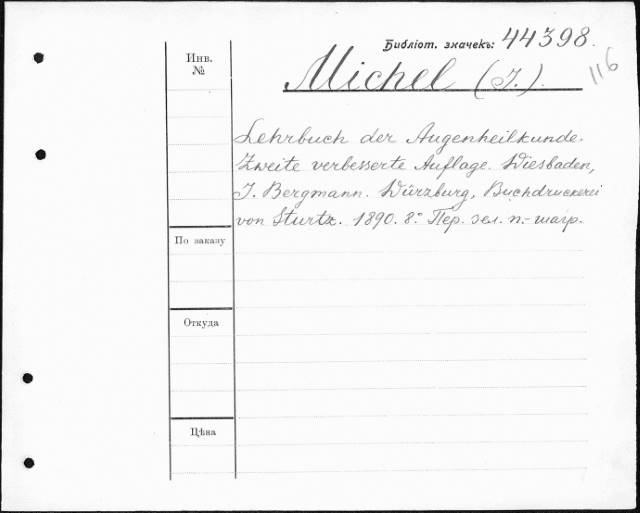 Библіот. значекъ: 44398.
116
Инв. №
Michel (J.).
Lehrbuch der Augenheilkunde.
Zweite verbesserte Auflage. Wiesbaden,
J. Bergmann. Würzburg, Buchdruckerei
von Sturtz. 1890. 8º Пер. зел. п.-шагр.
По заказу
Откуда
Цѣна